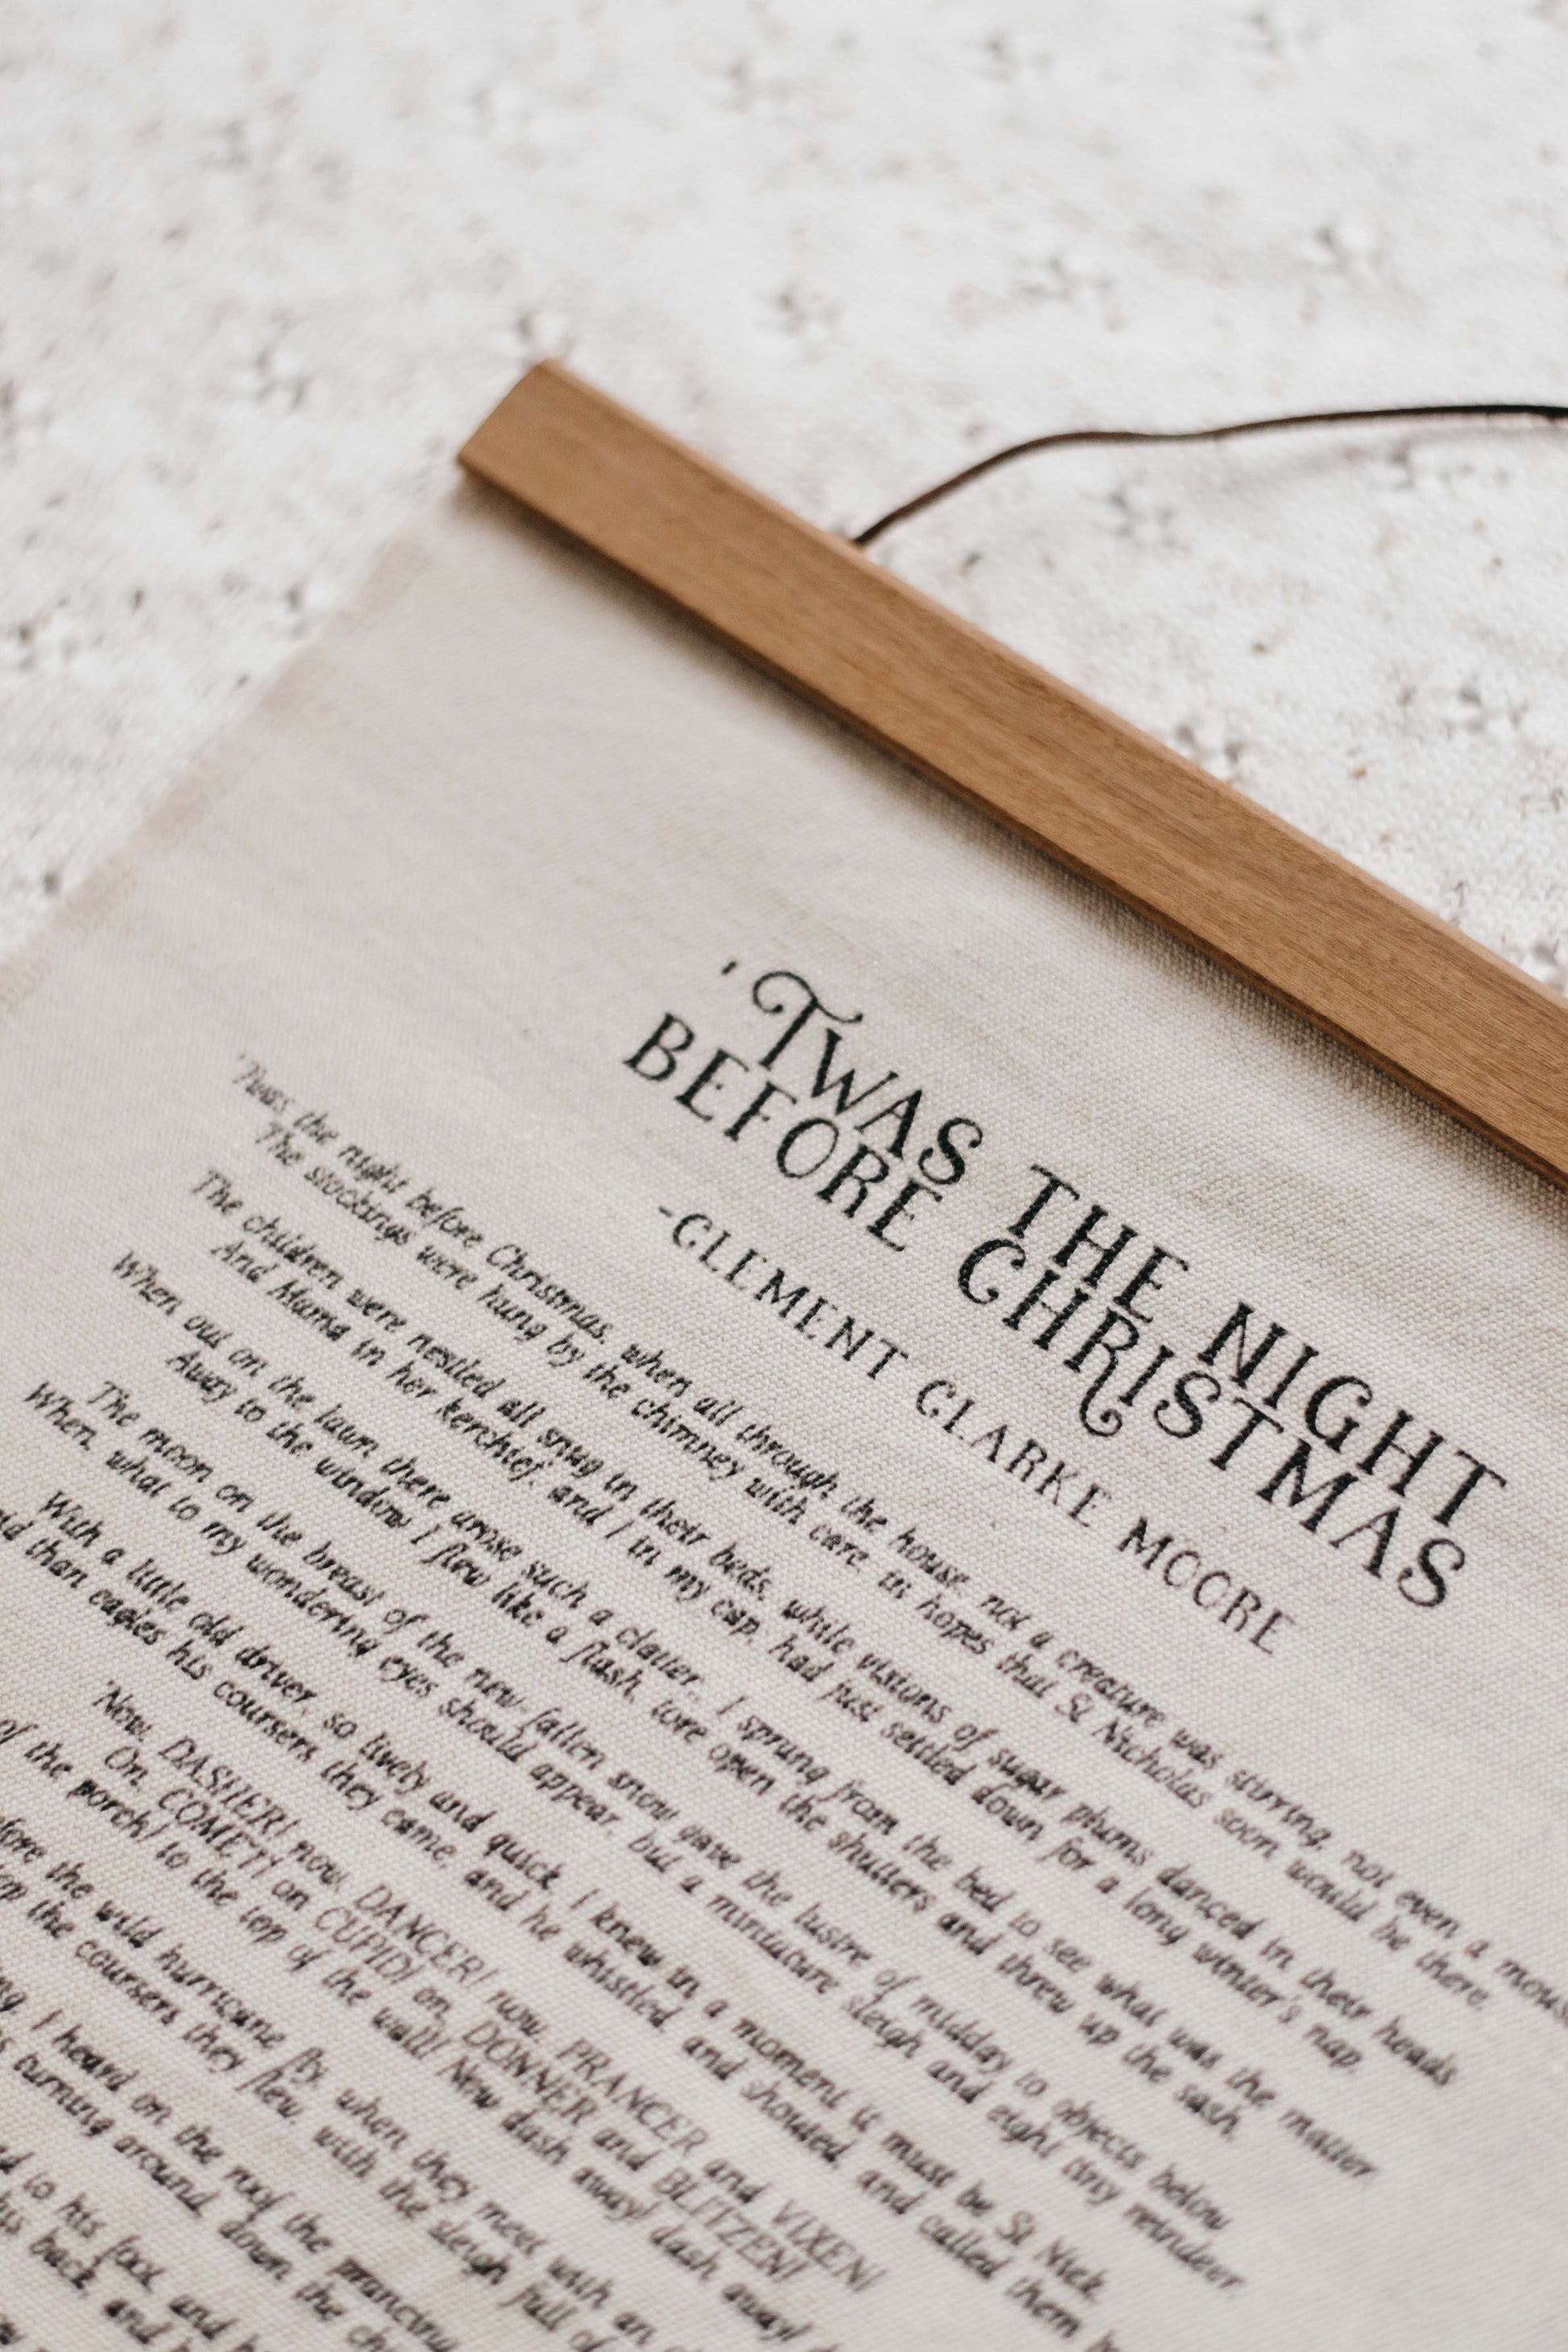 'TWAS THE NIGHT
BEFORE CHRISTMAS
-CLEMENT CLARKE MOORE
'Twas the night before Christmas, when all through the house, not a creature was stirring, not even a
The stockings were hung by the chimney with care, in hopes that St Nicholas soon would be there,
The children were nestled all snug in their beds, while visions of sugar plums danced in their heads
And Mama in her kerchief, and I in my cap, had just settled down for a long winter's nap.
When out on the lawn there arose such a clatter, I sprung from the bed to see what was the matter.
Away to the window I flew like a flash, tore open the shutters and threw up the sash,
The moon on the breast of the new-fallen snow gave the lustre of midday to objects below
When, what to my wondering eyes should appear, but a miniature sleigh and eight tiny reindeer.
With a little old driver, so lively and quick, I knew in a moment it must be St Nick.
than eagles his coursers they came, and he whistled, and shouted, and called them
'Now, DASHER! now, DANCER! now, PRANCER and VIXEN!
On, COMET! on CUPID! on, DONNER and BLITZEN!
of the porch! to the top of the wall! Now dash away! dash away!
the wild hurricane fly, when they meet with an
the coursers they flew, with the sleigh full of
I heard on the roof the prancing
turning around, down the
to his foot, and
back, and